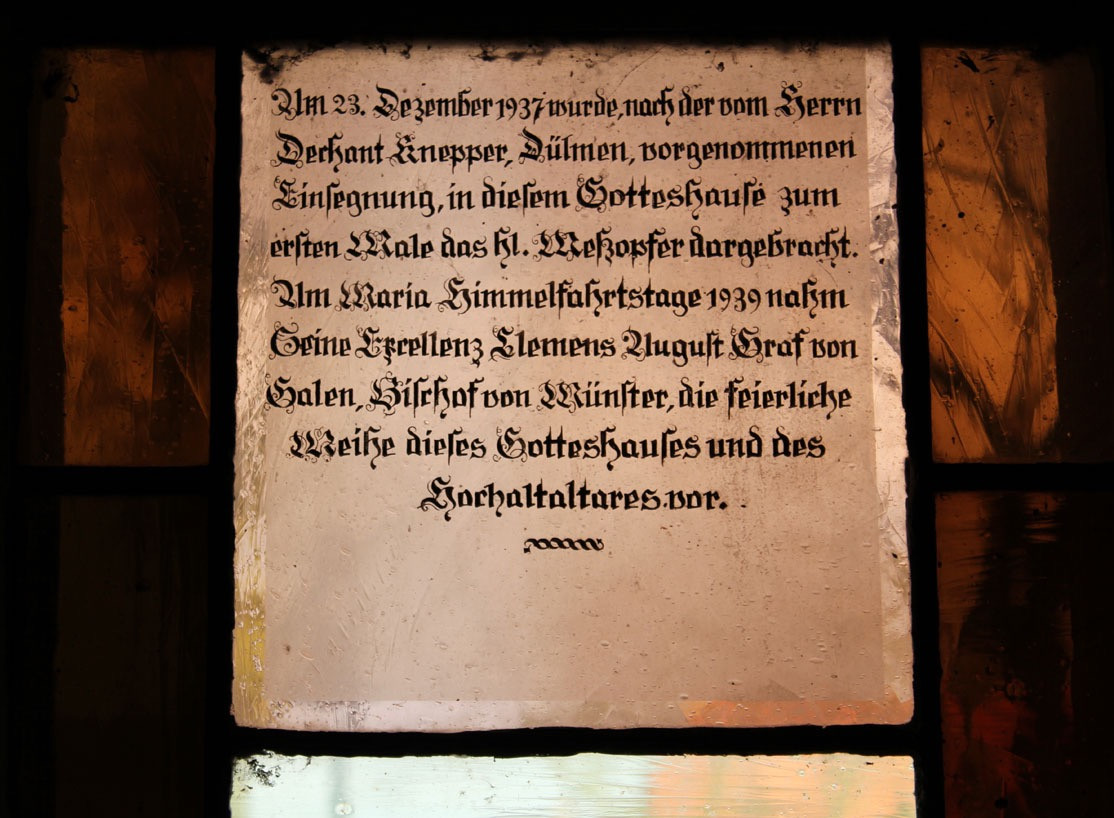 Am 23. Dezember 1937 wurde, nach der vom Herrn
Dechant Knepper, Dülmen, vorgenommenen
Einsegnung, in diesem Gotteshause zum
ersten Male das hl. Meßopfer dargebracht.
Am Maria Himmelfahrtstage 1939 nahm
Seine Excellenz Clemens August Graf von
Galen, Bischof von Münster, die feierliche
Weihe dieses Gotteshauses und des
Hochaltaltares vor.